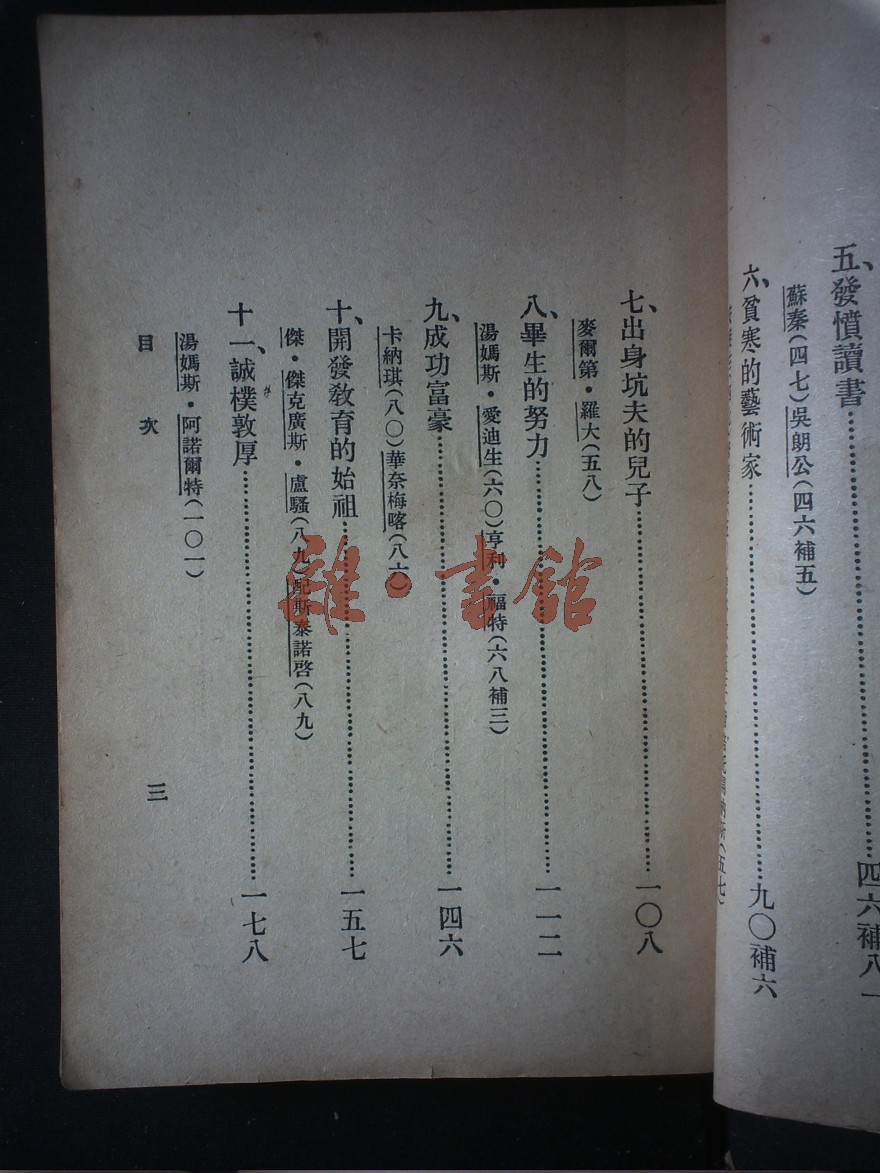 五、發憤讀書……四六補八一
蘇秦(四七)吳朗公(四六補五)
六、貧寒的藝術家……九〇補六
(五七)
七、出身坑夫的兒子……一〇八
麥爾第·羅大(五八)
八、畢生的努力……一一二
湯媽斯·愛迪生(六〇)亨利·福特(六八補三)
九、成功富豪……一四六
卡納琪(八〇)華奈梅喀(八六)
十、開發教育的始祖……一五七
傑·傑克廣斯·盧騷(八九)配斯泰諾啓(八九)
十一、誠樸敦厚……一七八
湯媽斯·阿諾爾特(一〇一)
目次
三
雜·書館